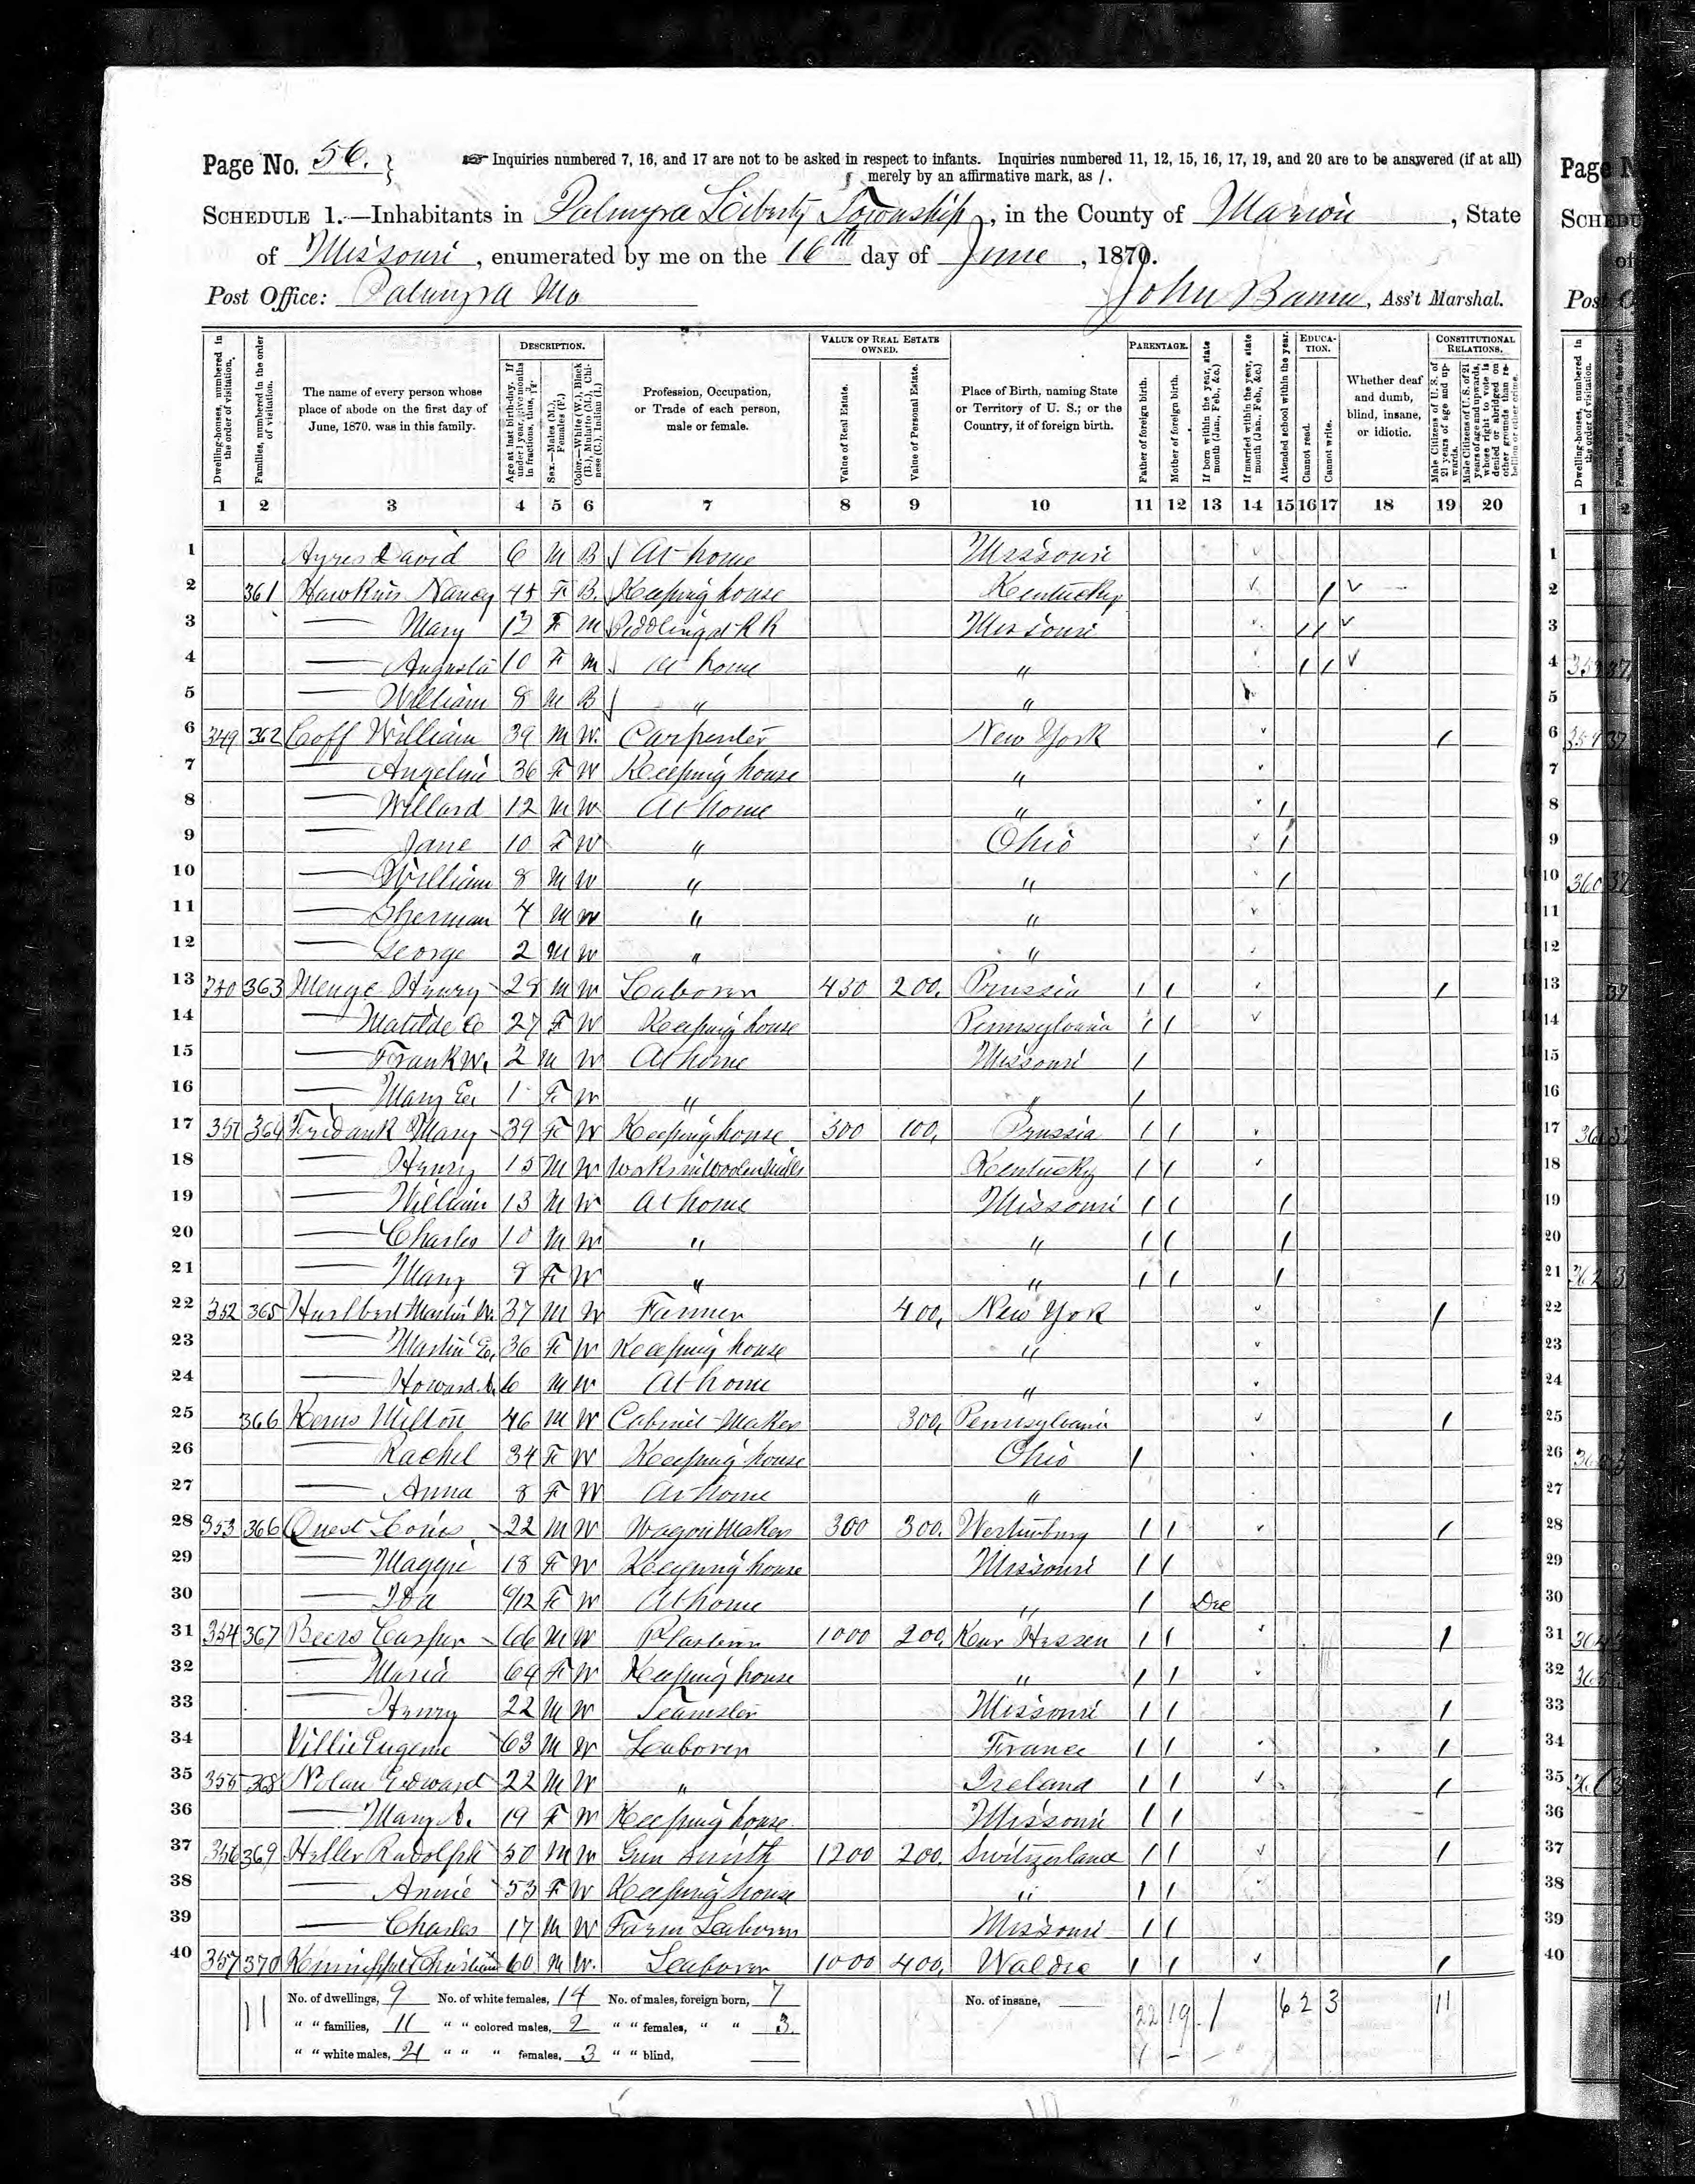 Page No. 56.
Inquiries numbered 7, 16, and 17 are not to be asked in respect to infants. Inquiries numbered 11, 12, 15, 16, 17, 19, and 20 are to be answered (if at all)
merely by an affirmative mark, as /.
SCHEDULE 1.—Inhabitants in Palmyra Liberty Township, in the County of Marion, State
of Missouri, enumerated by me on the 16th day of June, 1870.
Post Office: Palmyra Mo
John, Ass't Marshal.
Dwelling-houses, numbered in the order of visitation.
Families, numbered in the order of visitation.
The name of every person whose place of abode on the first day of June, 1870, was in this family.
DESCRIPTION.
Age at last birth-day. If under 1 year, give months in fractions, thus,
Sex.—Males (M.), Females (F.)
Color.—White (W.), Black (B.), Mulatto (M.), Chinese (C.), Indian (I.)
Profession, Occupation, or Trade of each person, male or female.
VALUE OF REAL ESTATE OWNED.
Value of Real Estate.
Value of Personal Estate.
Place of Birth, naming State or Territory of U. S.; or the Country, if of foreign birth.
PARENTAGE.
Father of foreign birth.
Mother of foreign birth.
If born within the year, state month (Jan., Feb., &c.)
If married within the year, state month (Jan., Feb., &c.)
Attended school within the year.
EDUCATION.
Cannot read.
Cannot write.
Whether deaf and dumb, blind, insane, or idiotic.
CONSTITUTIONAL RELATIONS.
Male Citizens of U. S. of 21 years of age and upwards.
Male Citizens of U. S. of 21 years of age and upwards, whose right to vote is denied or abridged on other grounds than rebellion or other crime.
1 2 3 4 5 6 7 8 9 10 11 12 13 14 15 16 17 18 19 20
1 Ayres David 6 M B At home Missouri
2 361 Hawkins Nancy F B. Keeping house Kentucky /
3 — Mary 12 F M R R Missouri / /
4 — Augusta 10 F M At home " / /
5 — William 8 M B " "
6 349 362 Goff William 39 M W. Carpenter New York /
7 — Angeline 36 F W Keeping house "
8 — Willard 12 M W At home " /
9 — Jane 10 F W " Ohio /
10 — William 8 M W " " /
11 — Sherman 4 M W " "
12 — George 2 M W " "
13 363 Menge Henry 28 M W Laborer 450 200. Prussia / / /
14 — Matilde 27 F W Keeping house Pennsylvania / /
15 — Frank W. 2 M W At home Missouri /
16 — Mary 1 F W " " /
17 351 364 Fridank Mary 39 F W Keeping house 300 100. Prussia / /
18 — Henry 15 M W Works in Woolen Mills Kentucky / /
19 — William 13 M W At home Missouri / / /
20 — Charles 10 M W " " / / /
21 — Mary 8 F W " " / / /
22 352 365 Hurlbert Martin 37 M W Farmer 400. New York /
23 — 36 F W Keeping house "
24 — Howard 6 M W At home "
25 366 Kerns Milton 46 M W Cabinet Maker 300. Pennsylvania /
26 — Rachel 34 F W Keeping house Ohio /
27 — Anna 8 F W At home "
28 353 366 Quest Louis 22 M W Wagon Maker 300 300. / / /
29 — Maggie 18 F W Keeping house Missouri / /
30 — Ida 6/12 F W At home " / Dec
31 354 367 Beers Casper 66 M W 1000 200. Kur Hessen / / /
32 — Maria 64 F W Keeping house " / /
33 — Henry 22 M W Teamster Missouri / / /
34 Villie Eugene 63 M W Laborer France / / /
35 355 368 Nolan Edward 22 M W " Ireland / / /
36 — Mary A. 19 F W Keeping house Missouri / /
37 356 369 Heller Rudolph 50 M W Gun Smith 1200 200. Switzerland / / /
38 — Annie 53 F W Keeping house " / /
39 — Charles 17 M W Farm Laborer Missouri / /
40 357 370 Christian 60 M W. Laborer 1000 400. / / /
No. of dwellings, 9 No. of white females, 14 No. of males, foreign born, 7 No. of insane, 22 19 1 6 2 3 11
" " families, 11 " " colored males, 2 " " females, " " 3.
" " white males, 21 " " " females, 3 " " blind,